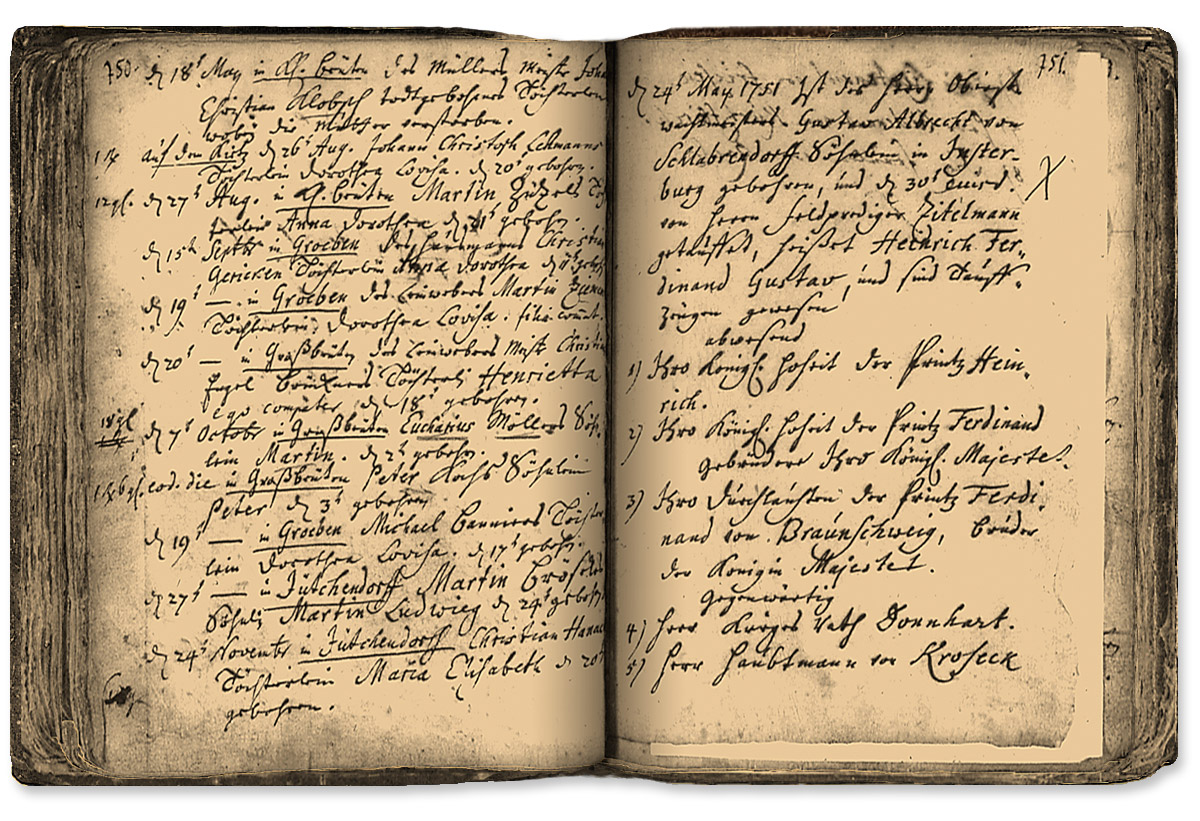 750. d. 18t May in Kl. beuten des Müllers Meistr Joha
Christian Klobsch todtgebohrnes Töchterlein
wobey die Mutter verstorben.
auf dem Kietz d. 26t Aug. Johann Christoph Lehmanns
Töchterlein Dorothea Lovisa. d. 20t gebohrn.
12 gl. d. 27t Aug. in Kl. beuten Martin
Anna Dorothea d. 21t gebohrn.
d. 15t Septbr in Groeben Christia
Gericken Töchterlein Anna Dorothea d. 11t gebohr
d. 19t — in Groeben des Leinwebers Martin
Töchterlein, Dorothea Lovisa.
d. 20t — in Großbeuten des Leinwebers Mestr Christia
Töchterl. Henrietta
d. 18t gebohren.
18 gl. d. 7t Octobr in Großbeuten Eucharius Möllers Söh-
lein Martin. d. 2t gebohrn.
eod. die in Großbeuten Peter Kochs Söhnlein
Peter d. 3t gebohren
d. 19t — in Groeben Michael Banniers Töchter
lein Dorothea Lovisa. d. 17t gebohr.
d. 27t — in Jütchendorff Martin
Söhnl. Martin Ludwieg d. 24t gebohrn
d. 24t Novembr in Jütchendorff Christian
Töchterlein Maria Elisabeth d. 20t
gebohren.
751.
d. 24t May 1751 Ist des Herrn Obrist
wachtmeisters Gustav Albrecht von
Schlabrendorff Söhnlein in Inster-
burg gebohren, und d. 30t eiusd.
von Herrn Feldprediger Zitelmann
getauffet, heißet Heinrich Fer-
dinand Gustav, und sind Tauff-
Zeugen gewesen
abwesend
1) Ihro Königl. Hoheit der Printz Hein-
rich.
2) Ihro Königl. Hoheit der Printz Ferdinand
Gebrüdere Ihro Königl. Majestet.
3) Ihro Durchlauchten der Printz Ferdi-
nand von Braunschweig, Bruder
der Königin Majestet.
Gegenwärtig
4) Herr Krieges Rath Donnhart.
5) Herr Haubtmann von Kroseck